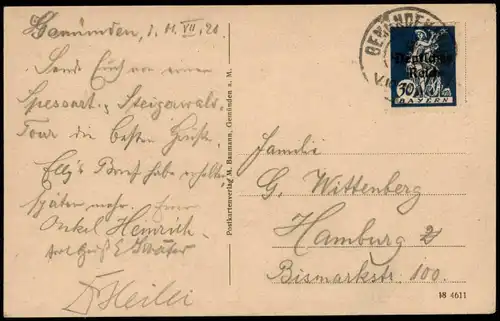 Gemünden, d. 11. VII. 20
Send Euch von einer
Spessart- & Steigerwald-
Tour die besten Grüße.
Elly's Brief habe erhalten
später mehr. Euer
Onkel Heinrich
Postkartenverlag M. Baumann, Gemünden a. M.
GEMÜNDEN
Deutsches
Reich
30
BAYERN
Familie
G. Wittenberg
Hamburg 2
Bismarkstr. 100.
18 4611